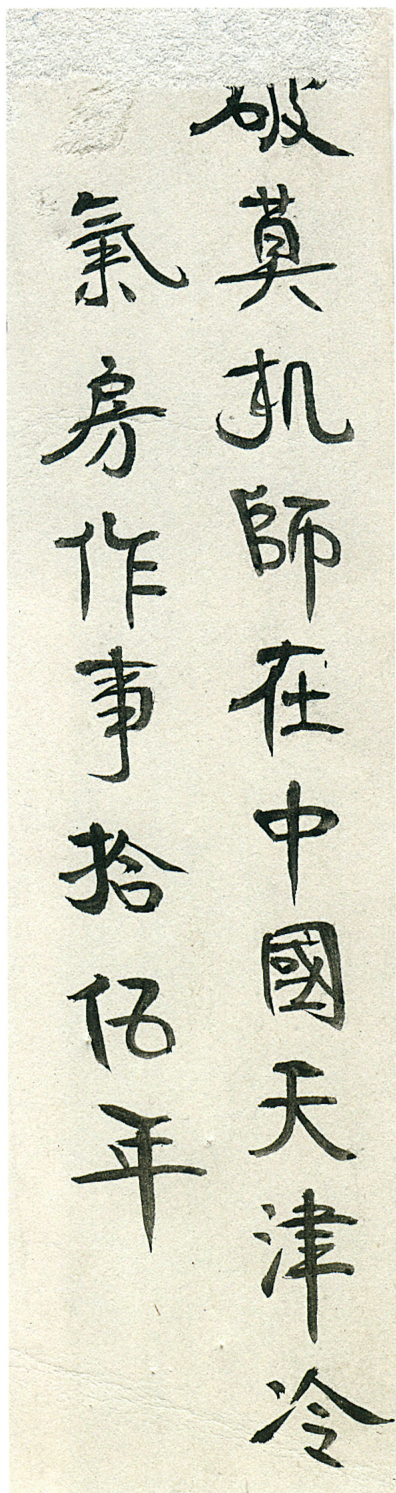 破莫机師在中國天津冷
氣房作事拾伍年